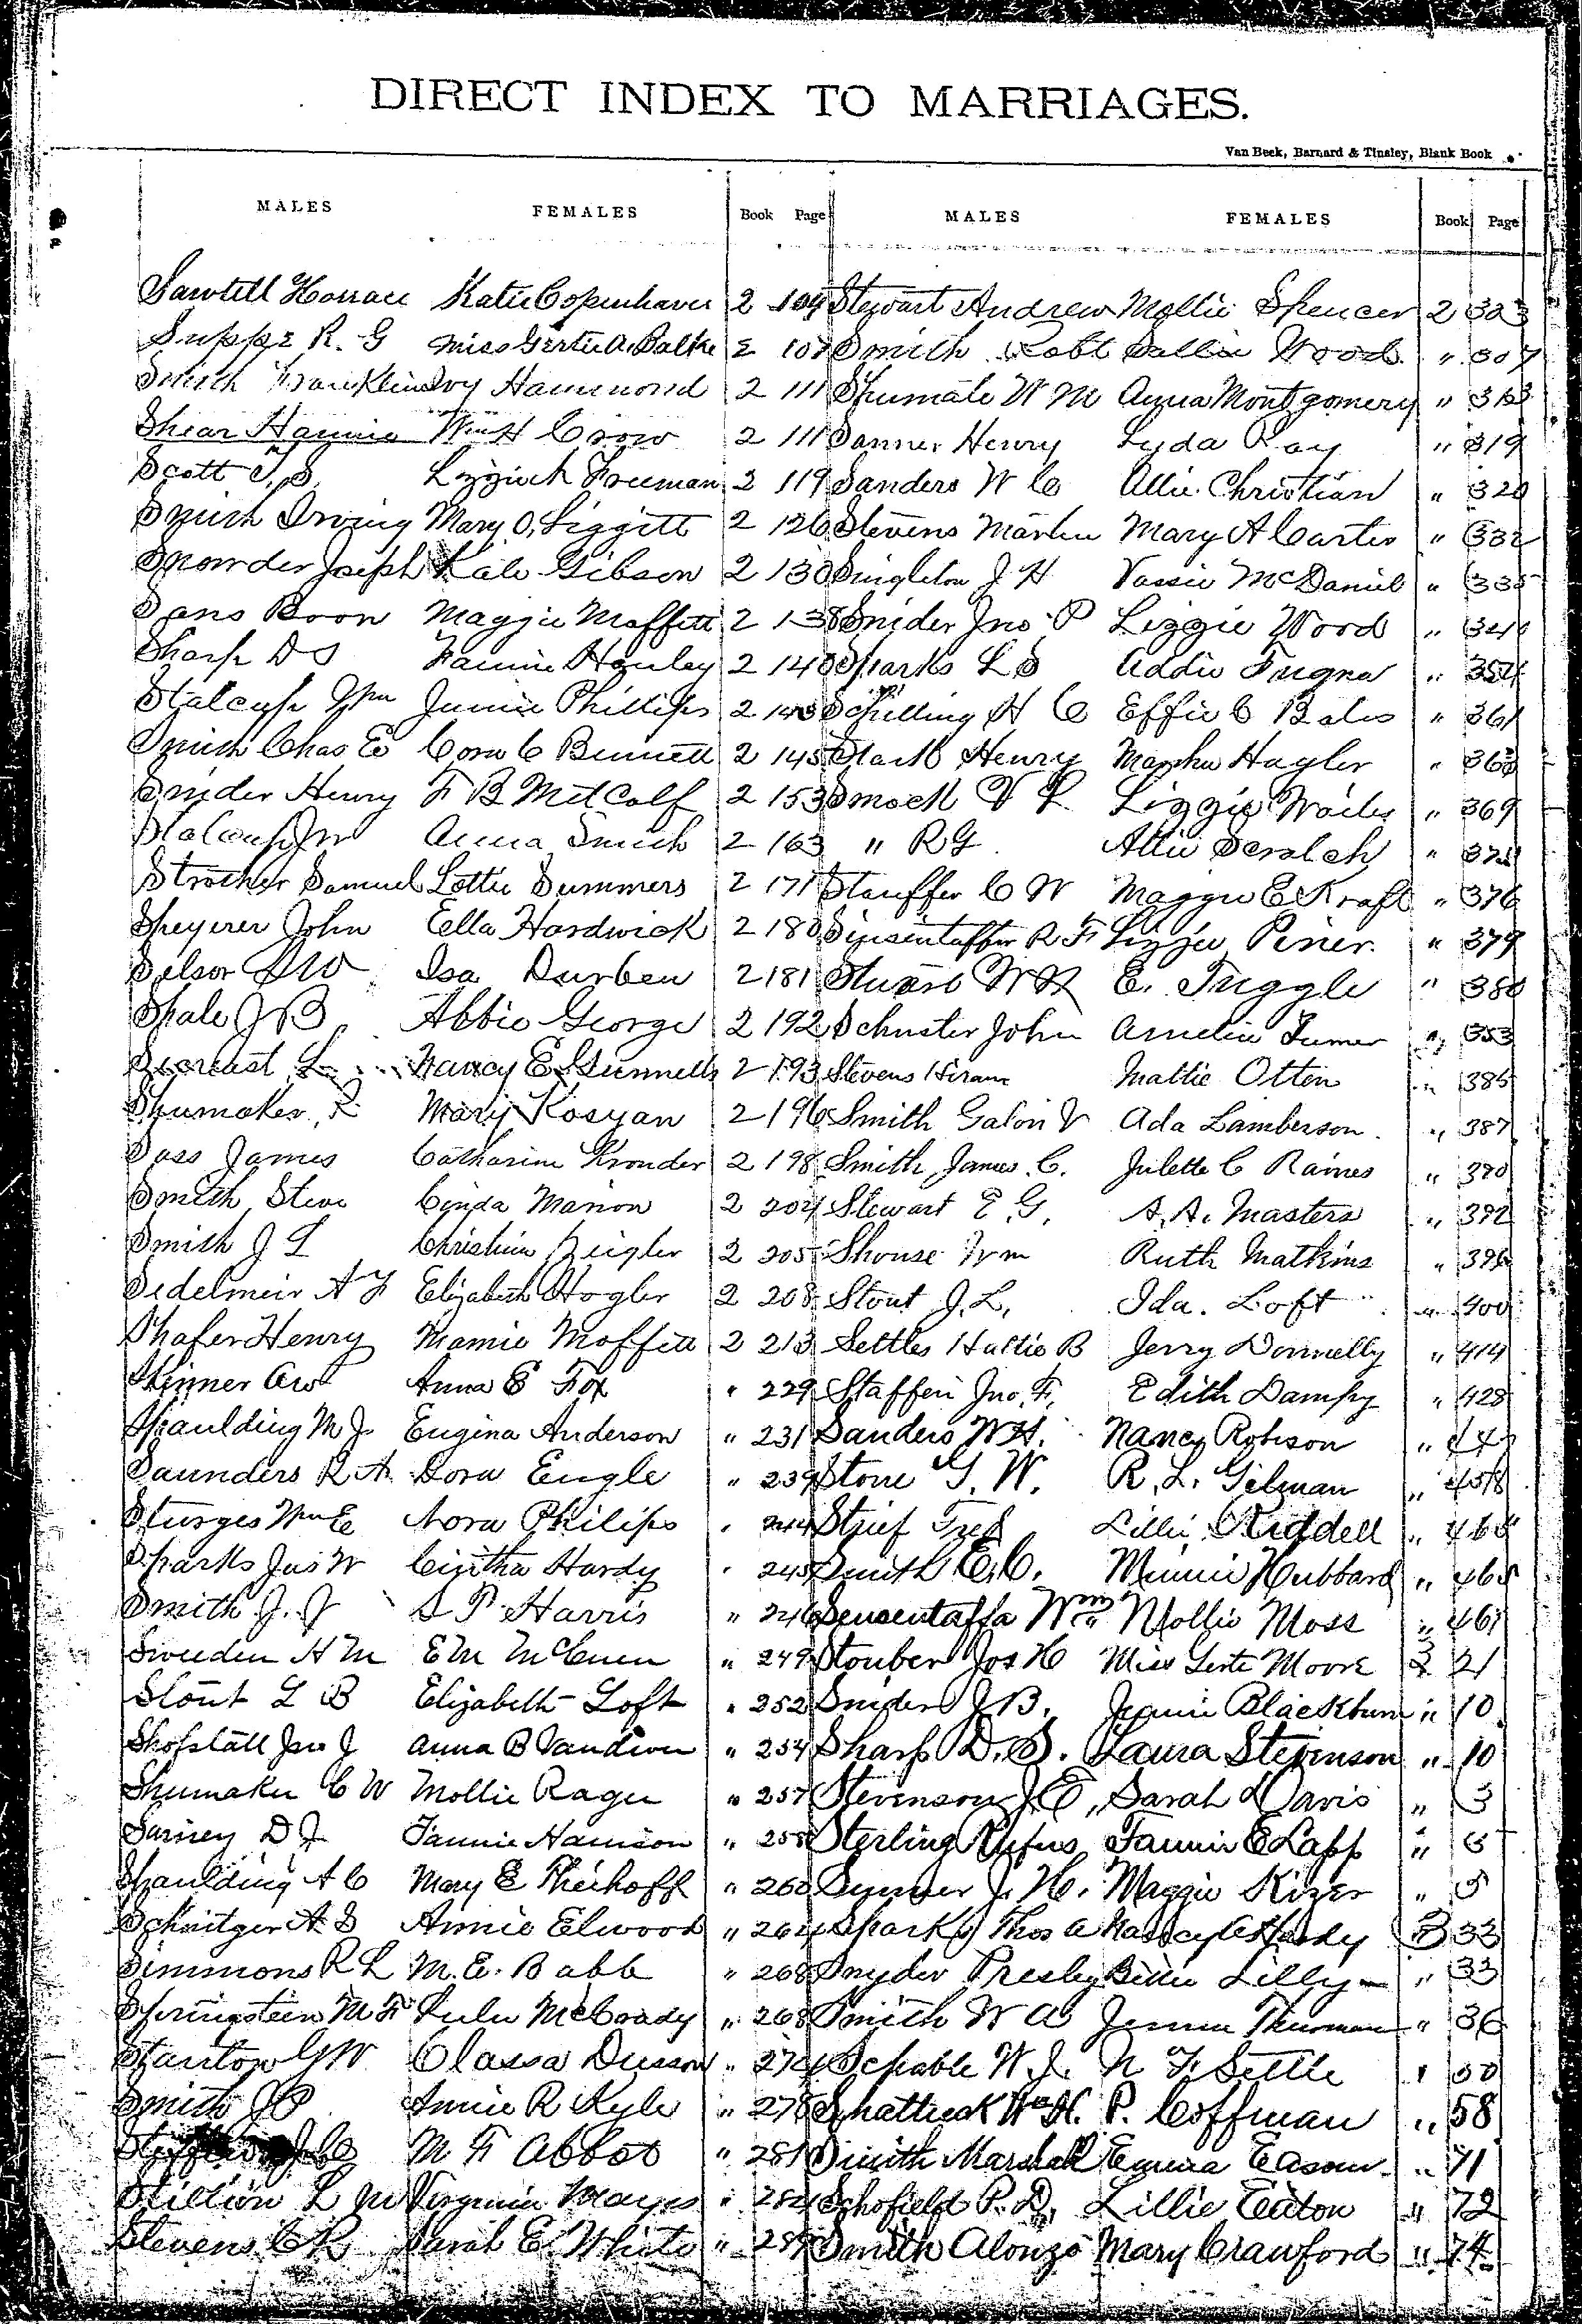 DIRECT INDEX TO MARRIAGES.
Van Beek, Barnard & Tinsley, Blank Book
MALES FEMALES Book Page MALES FEMALES Book Page
Sawtell Horrace Katie Copenhaver 2 104 Stewart Andrew Mollie Spencer 2 303
R. G Miss Gertie A. 2 107 Smith Robt Sallie Wood " 307
Smith Franklin Ivy Hammond 2 111 Shumate W M Anna Montgomery " 313
Shear Hannie Wm H Crow 2 111 Sanner Henry Lyda Ray " 319
Scott T. S. Lizzie A Freeman 2 119 Sanders W C Allie Christian " 320
Smith Irving Mary O. Liggitt 2 126 Stevens Martin Mary A Carter " 332
Snowder Joseph Kate Gibson 2 130 Singleton J H Vassie McDaniel " 335
Sans Boon Maggie Moffett 2 138 Snider Jno P Lizzie Wood "
Sharp D S Fannie Hanley 2 140 Sparks L S Addie Fugna " 354
Stalcup Wm Jennie Phillips 2 143 Schilling H C Effie C Bales " 361
Smith Chas E Cora C Bennett 2 145 Stark Henry Martha Hagler "
Snider Henry F B Metcalf 2 153 Smock V L Lizzie Wailes " 369
Stalcup Jno Anna Smith 2 163 " R G Allie Scratch "
Strother Samuel Lottie Summers 2 171 Stauffer C W Maggie E Kraft " 376
Speyerer John Ella Hardwick 2 180 Sinsintaffer R F Lizzie Piner " 379
Selsor S W Isa Durben 2 181 Stuart W R E. Tuggle " 380
Shale J B Abbie George 2 192 Schuster John Amelia Turner " 353
Secreast L Nancy E Gunnells 2 193 Stevens Hiram Mattie Otten " 385
Shumaker R Mary Kosyan 2 196 Smith Galon V Ada Lamberson " 387
Sass James Catharine Kronder 2 198 Smith James C. Julette C Raines " 390
Smith Steve Cinda Marion 2 204 Stewart E G. A. A. Masters " 392
Smith J L Christina Zeigler 2 205 Shouse Wm Ruth Mathims " 396
Sedelmeir A F Elizabeth Hogler 2 208 Stout J. L. Ida. Loft " 400
Shafer Henry Mamie Moffett 2 213 Settles Hattie B Jerry Donnelly " 414
Skinner A W Anna E Fox " 229 Staffen Jno. F. Edith Dampy " 428
Spaulding M J. Eugina Anderson " 231 Sanders W H. Nancy Robison "
Saunders R A Dora Engle " 239 Stone G. W. R. L. Gilman " 458
Sturges Wm E Nora Philips " 244 Strief Fred Lillie Riddell "
Sparks Jas W Cintha Hardy " 245 Smith E. C. Minnie Hubbard " 465
Smith J. J S P Harris " 246 Sensentaffa Wm Mollie Moss " 461
Sweeden H M E M McCuen " 249 Stouber Jos H Miss Gerte Moore 3 21
Stout L B Elizabeth Loft " 252 Snider J B. Jennie Blackburn " 10
Shofstall Jno J Anna B Vandiver " 254 Sharp D. S. Laura Stevinson " 10
Shumaker C W Mollie Rager " 257 Stevenson J. E, Sarah Davis " 3
D J Fannie Harrison " 258 Sterling Rufus Fannie E Lapp "
Spaulding A C Mary E Theihoff " 260 J. H. Maggie Kizer " 5
Schnitger A S Annie Elwood " 264 Sparks Thos A Nancy A Hardy 3 33
Simmons R L M. E. Babb " 268 Snyder Presley Bettie Lilly " 33
Springsteen M F Lulu McCoady " 268 Smith W A Jennie Thurman " 36
Stanton G W Classa Dusson " 274 Schable W. J. N F Settle " 50
Smith J P Annie R Kyle " 278 Shattuck Wm H. P. Coffman " 58
M F Abbot " 281 Smith Marshall Emma Eason " 71
Stillion L M Virginia Mayes " 284 Schofield P. D. Lillie Eaton " 72
Stevens C R Sarah E. White " 289 Smith Alonzo Mary Crawford " 74